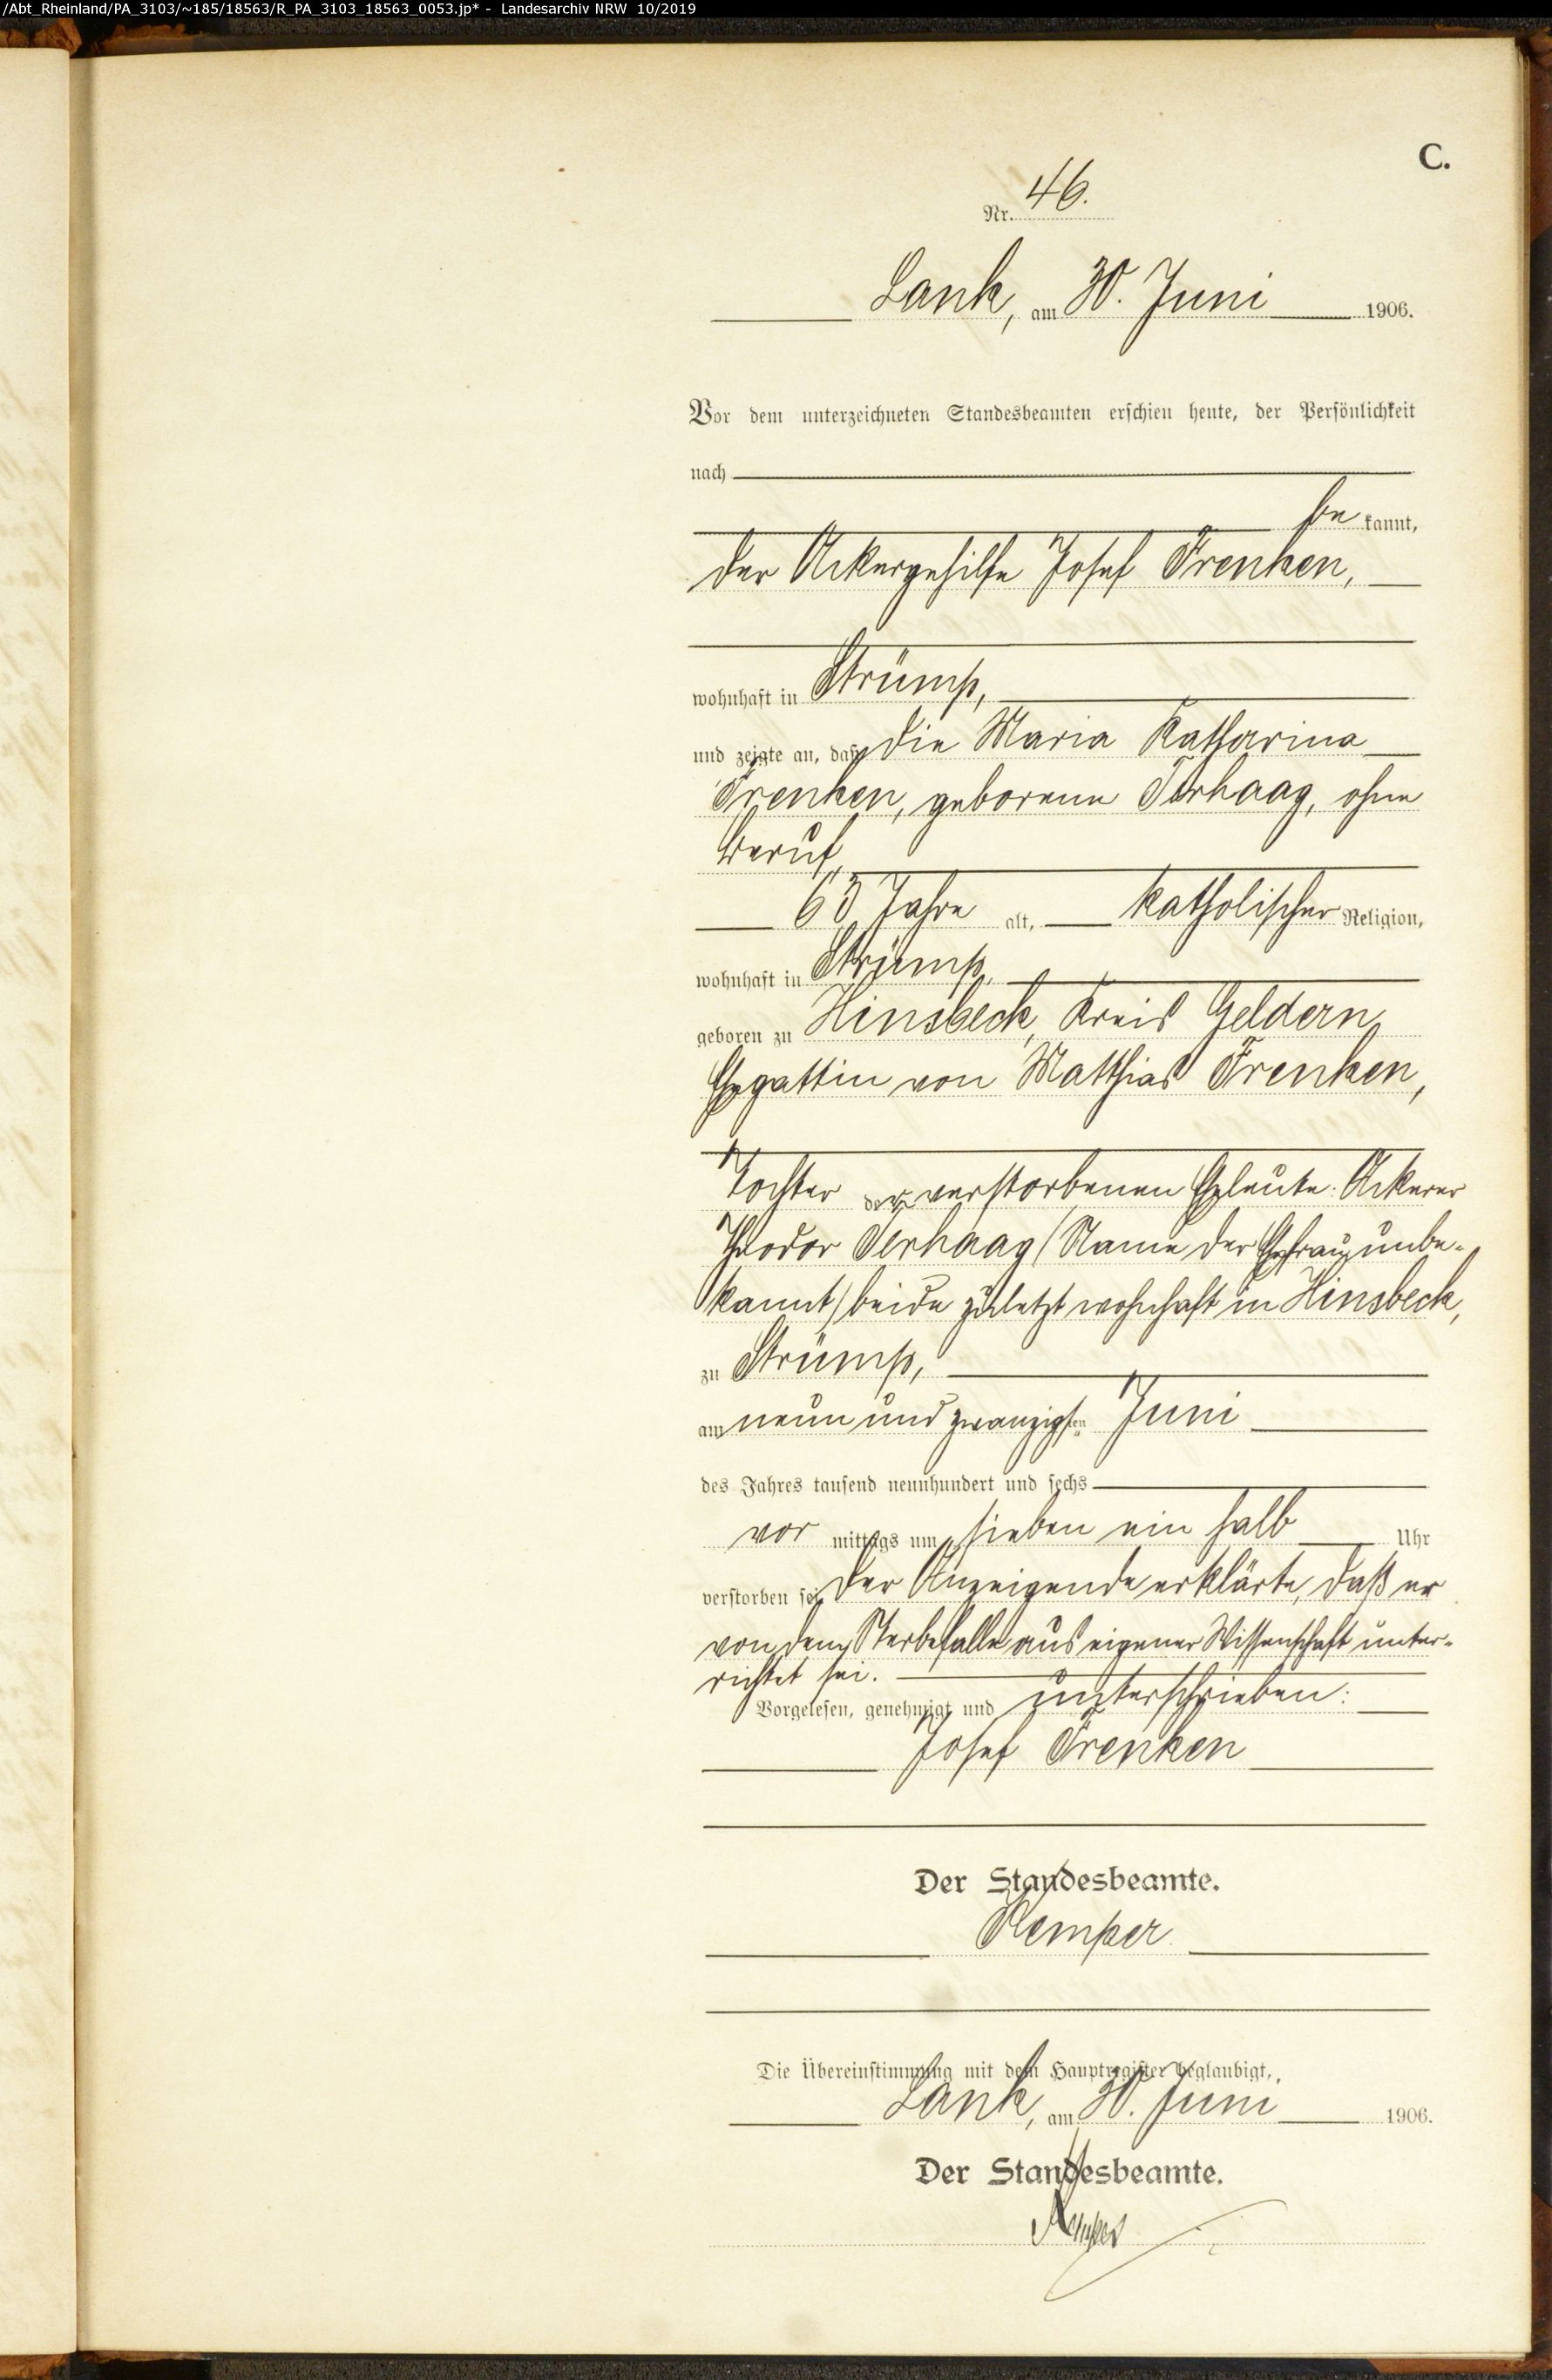 /Abt_Rheinland/PA_3103/~185/18563/R_PA_3103_18563_0053.jp* - Landesarchiv NRW 10/2019
C.
Nr. 46.
Lank, am 30. Juni 1906.
Vor dem unterzeichneten Standesbeamten erschien heute, der Persönlichkeit
nach
be kannt,
der Ackergehilfe Josef Frenken,
wohnhaft in Strümp,
und zeigte an, daß die Maria Katharina
Frenken, geborene Terhaag, ohne
Beruf,
63 Jahre alt, katholischer Religion,
wohnhaft in Strümp,
geboren zu Hinsbeck, Kreis Geldern,
Ehegattin von Matthias Frenken,
Tochter der verstorbenen Eheleute: Ackerer
Theodor Terhaag (Name der Ehefrau unbe-
kannt) beide zuletzt wohnhaft in Hinsbeck,
zu Strümp,
am neun und zwanzigsten Juni
des Jahres tausend neunhundert und sechs
vor mittags um sieben ein halb Uhr
verstorben sei. Der Anzeigende erklärte, daß er
von dem Sterbefalle aus eigener Wissenschaft unter-
richtet sei.
Vorgelesen, genehmigt und unterschrieben:
Josef Frenken
Der Standesbeamte.
Kemper
Die Übereinstimmung mit dem Hauptregister beglaubigt,
Lank, am 30. Juni 1906.
Der Standesbeamte.
Kemper